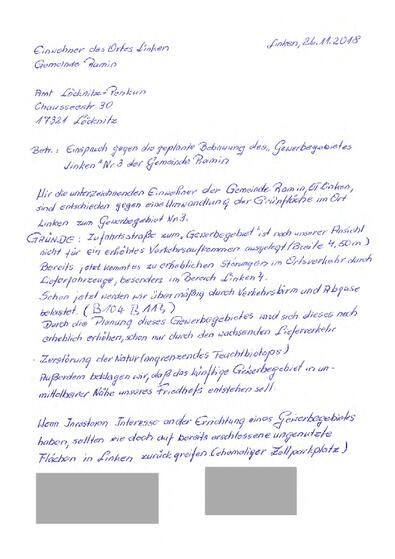 Linken, 26.11.2018
Einwohner des Ortes Linken
Gemeinde Ramin
Amt Löcknitz-Penkun
Chausseestr. 30
17321 Löcknitz
Betr.: Einspruch gegen die geplante Bebauung des „Gewerbegebietes
Linken" Nr. 3 der Gemeinde Ramin
Wir die unterzeichnenden Einwohner der Gemeinde Ramin, OT Linken,
sind entschieden gegen eine Umwandlung der Grünfläche im Ort
Linken zum Gewerbegebiet Nr. 3.
GRÜNDE: Zufahrtsstraße zum „Gewerbegebiet" ist nach unserer Ansicht
nicht für ein erhöhtes Verkehrsaufkommen ausgelegt (Breite 4,60m)
Bereits jetzt kommt es zu erheblichen Störungen im Ortsverkehr durch
Lieferfahrzeuge, besonders im Bereich Linken 4.
Schon jetzt werden wir übermäßig durch Verkehrslärm und Abgase
belastet. (B104 B113)
Durch die Planung dieses Gewerbegebietes wird sich dieses noch
erheblich erhöhen, schon nur durch den wachsenden Lieferverkehr
- Zerstörung der Natur (angrenzendes Feuchtbiotops)
Außerdem beklagen wir, daß das künftige Gewerbegebiet in un-
mittelbarer Nähe unseres Friedhofs entstehen soll.
Wenn Investoren Interesse an der Errichtung eines Gewerbegebiets
haben, sollten sie doch auf bereits erschlossene ungenutzte
Flächen in Linken zurückgreifen (ehemaliger Zollparkplatz)